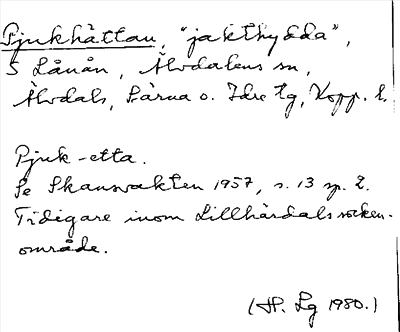 Pjukhättan, "jakthydda",
S Lånån, Älvdalens sn,
Älvdals, Särna o. Idre tg, Kopp. l.
Pjuk-etta.
Se Skansvakten 1957, s. 13 sp. 2.
Tidigare inom Lillhärdals socken-
område.
(H. Lg 1980.)